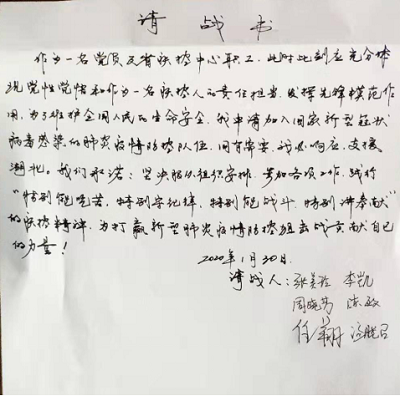 请战书
作为一名党员及省疾控中心职工，此时此刻应充分体
现党性党悟和作为一名疾控人的责任担当，发挥先锋模范作
用，为了维护全国人民的生命安全，我申请加入国家新型冠状
病毒感染的肺炎疫情防控队伍，国有需要，我必响应，支援
湖北。我们承诺：坚决服从组织安排，参加各项工作，践行
“特别能吃苦，特别守纪律，特别能战斗，特别讲奉献”
的疾控精神，为打赢新型肺炎疫情防控阻击战贡献自己
的力量！
2020年1月30日.
请战人：张 李凯
周晓 陈敏
任